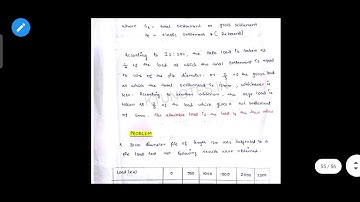 where Sₜ = total settlement or gross settlement
Se = elastic settlement of (Rebound)
According to IS: 2911, the safe load is taken as
of the load at which the total settlement is equal
to 10% of the pile diameter. or 2/3 of the gross load
at which the total settlement is 12mm, whichever is
less. According to another criterion, the safe load is
taken as 2/3 of the load which gives a net settlement
of 6mm. The allowable load is the least of the
PROBLEM
diameter pile of length 12m was subjected to a
pile load test following results were observed.
Load (kN) 0 500 1000 1500 2000 2500
55 / 56